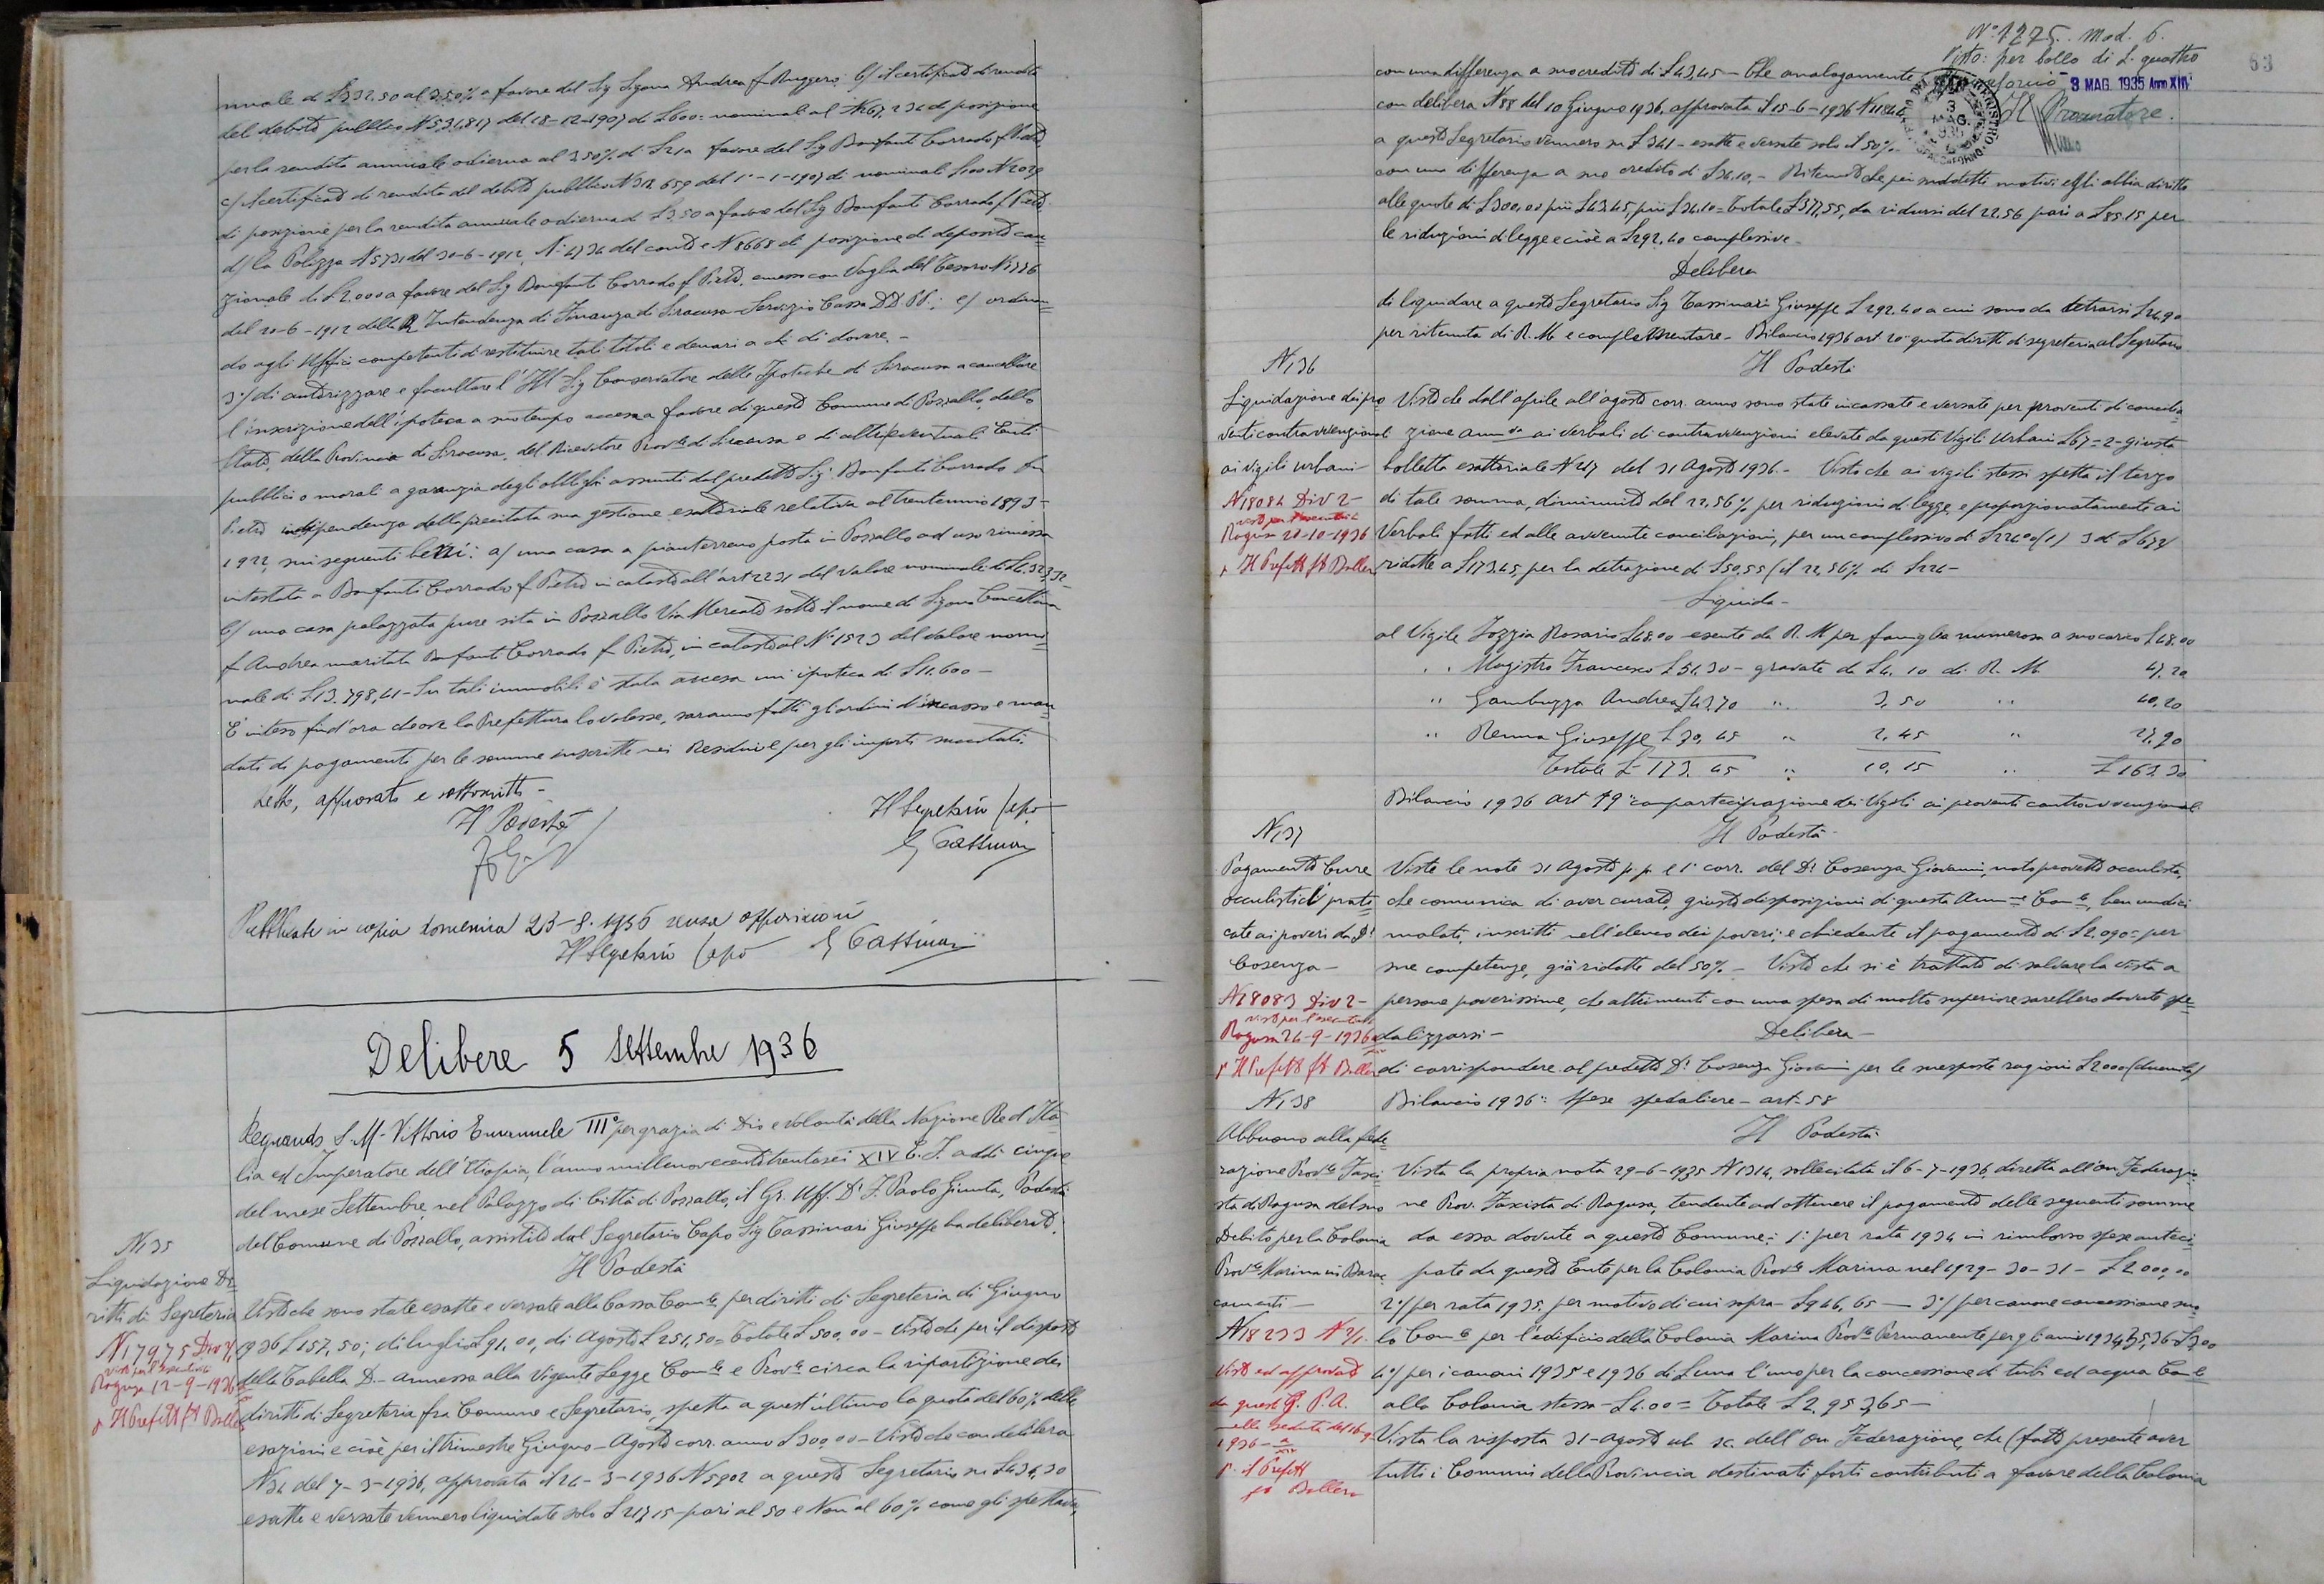 nuale di £332.50 al 3.50% a favore del Sig Sigona Andrea f Ruggero: b/ il certificato di rendita
del debito pubblico N 534,817 del 18-12-1907 di £600= nominali al N 67,234 di posizione
per la rendita annuale odierna al 3.50% di £21 a favore del Sig Bonfanti Corrado f Pietro
c/ il certificato di rendita del debito pubblico N 312.659 del 1°-1-1907 di nominali £100
di posizione per la rendita annuale odierna di £3.50 a favore del Sig Bonfanti Corrado f Pietro
d/ la Polizza N 573 del 30-6-1912, N° 4734 del conto e N 8668 di posizione di deposito cau=
zionale di £2.000 a favore del Sig Bonfanti Corrado f Pietro, emesso con Vaglia del Tesoro N 3776
del 20-6-1912 della R Intendenza di Finanza di Siracusa - Servizio Cassa DD. PP.: e/ ordinan=
do agli Uffici competenti di restituire tali titoli e denari a chi di dovere.-
3°/ di autorizzare e facultare l'Ill Sig Conservatore delle Ipoteche di Siracusa a cancellare
l'inscrizione dell'ipoteca a suo tempo accesa a favore di questo Comune di Pozzallo, dello
Stato, della Provincia di Siracusa, del Ricevitore Prov.le di Siracusa e di altri eventuali Enti
pubblici o morali a garanzia degli obblighi assunti dal predetto Sig. Bonfanti Corrado fu
Pietro in dipendenza della precitata sua gestione esattoriale relativa al trentennio 1893-
1922, sui seguenti beni: a/ una casa a pianterreno posta in Pozzallo ad uso rimessa
intestata a Bonfanti Corrado f Pietro in catasto all'art 2231 del valore nominale di
b/ una casa palazzata pure sita in Pozzallo Via Mercato sotto il nome di Sigona Concettina
f Andrea maritata Bonfanti Corrado f Pietro, in catasto al N° 1523 del valore nomi=
nale di £13.798,41 - Su tali immobili è stata accesa un ipoteca di £11.600-
È inteso fin d'ora che ove la Prefettura lo volesse, saranno fatti gli ordini d'incasso e man=
dati di pagamenti per le somme inscritte nei Residui e per gli importi suaccitati.
Letto, approvato e sottoscritto -
Il Podestà
Il Segretario Capo
G Tassinari
Pubblicata in copia domenica 23-8-1936 senza opposizioni
Il Segretario Capo G Tassinari
Delibere 5 Settembre 1936
Regnando S. M. Vittorio Emanuele III° per grazia di Dio e volontà della Nazione Re d'Ita
lia ed Imperatore dell'Etiopia, l'anno millenovecentotrentasei XIV E. F. addì cinque
del mese Settembre, nel Palazzo di Città di Pozzallo, il Gr. Uff. Dr F. Paolo Giunta, Podestà
del Comune di Pozzallo, assistito dal Segretario Capo Sig Tassinari Giuseppe ha deliberato.
N 135
Il Podestà
Liquidazione Di=
ritti di Segreteria
N 17975 Div 2/
visto per l'esecutività
Ragusa 12-9-1936
p Il Prefetto f° Ballero
Visto che sono state esatte e versate alla Cassa Com.le per diritti di Segreteria di Giugno
1936 £157,50; di luglio £91,00, di Agosto £251,50 = Totale £500,00 - Visto che per il disposto
della Tabella D - annessa alla Vigente Legge Com.le e Prov.le circa la ripartizione dei
diritti di Segreteria fra Comune e Segretario, spetta a quest'ultimo la quota del 60% delle
esazioni e cioè per il trimestre Giugno - Agosto corr. anno £300,00 - Visto che con delibera
N 34 del 7-3-1936, approvata il 24-3-1936 N 5902 a questo Segretario su £434,30
esatte e versate vennero liquidate solo £217,15 - pari al 50 e Non al 60% come gli spettava,
N° 1275. mod. 6.
Visto: per bollo di L. quattro
63
3 MAG. 1935 Anno XIII
Il Procuratore.
con una differenza a suo credito di £43,45 - Che analogamente
con delibera N 88 del 10 Giugno 1936, approvata il 15-6-1936 N 11844
a questo Segretario vennero su £341 - esatte e versate solo il 50%
con una differenza a suo credito di £34.10.- Ritenuto che pei suddetti motivi egli abbia diritto
alle quote di £300,00 più £43.45, più £34.10 = Totale £377,55, da ridursi del 22.56 pari a £85.15 per
le riduzioni di legge e cioè a £292,40 complessive.
Delibera
di liquidare a questo Segretario Sig Tassinari Giuseppe £292.40 a cui sono da detrarsi £24,90
per ritenuta di R. M e complementare - Bilancio 1936 art 20 "quota diritti di segreteria al Segretario
N 136
Il Podestà
Liquidazione dei pro
venti contravvenzionali
ai vigili urbani-
N 18084 Div 2-
visto per l'esecutività
Ragusa 20-10-1936
p Il Prefetto f° Ballero
Visto che dall'aprile all'agosto corr. anno sono state incassate e versate per proventi di concilia
zione amm.va ai verbali di contravvenzioni elevate da questi Vigili Urbani £672 - giusta
bolletta esattoriale N 217 del 31 Agosto 1936 - Visto che ai vigili stessi spetta il terzo
di tale somma, diminuito del 22,56% per riduzioni di legge, e proporzionatamente ai
Verbali fatti ed alle avvenute conciliazioni, per un complessivo di £224,00 (1/3 di £672)
ridotte a £173.45, per la detrazione di £50,55 (il 22,56% di £224-
Liquida-
al Vigile Iozzia Rosario £48.00 esente da R. M per famiglia numerosa a suo carico £48.00
" Magistro Francesco £51.30 - gravate da £4,10 di R. M 47.20
" Gambuzza Andrea £43,70 " 3,50 " 40,20
" Renna Giuseppe £30,45 " 2,45 " 27,90
Totale £173.45 " 10,15 " £163.30
Bilancio 1936 art 79 "compartecipazione dei Vigili ai proventi contravvenzionali
N 137
Il Podestà-
Pagamento Cure
oculistiche prati
cate ai poveri da Dr
Cosenza-
N 18083 Div 2-
visto per l'esecutività
Ragusa 24-9-1936
p Il Prefetto f° Ballero
Viste le note 31 Agosto p. p. e 1° corr. del Dr Cosenza Giovanni, noto provetto occulista,
che comunica di aver curato, giusto disposizioni di questa Amm.ne Com.le, ben undici
malati, inscritti nell'elenco dei poveri; e chiedente il pagamento di £2.090= per
sue competenze, già ridotte del 50%. - Visto che si è trattato di salvare la vista a
persone poverissime, che altrimenti con una spesa di molto superiore sarebbero dovute ospe=
dalizzarsi -
Delibera-
di corrispondere al predetto Dr Cosenza Giovanni per le suesposte ragioni £2000 (duemila)
Bilancio 1936 " spese spedaliere - art. 58
N 138
Il Podestà
Abbuono alla fede
razione Prov.le Fasci
sta di Ragusa del suo
Debito per la Colonia
Prov.le Marina in Barac
camenti-
N 18233 N 2/1.
Visto ed approvato
da questa G. P. A.
nella seduta del 16-9-
1936-
p. il Prefetto
f° Ballero
Vista la propria nota 29-6-1935 N 1314, sollecitata il 6-7-1936, diretta all'On. Federazio=
ne Prov. Fascista di Ragusa, tendente ad ottenere il pagamento delle seguenti somme
da essa dovute a questo Comune: 1° per rata 1934 in rimborso spese antici=
pate da questo Ente per la Colonia Prov.le Marina nel 1929-30-31 - £2000,00
2°/ per rata 1935, per motivo di cui sopra - £946,65 - 3°/ per canone concessione suo
lo Com.le per l'edificio della Colonia Marina Prov.le Permanente per gli anni 1934,35,36 - £3,00
4°/ per i canoni 1935 e 1936 di £una l'uno per la concessione di tubi ed acqua Com.le
alla Colonia stessa - £4.00 = Totale £2.953,65-
Vista la risposta 31-Agosto u. sc. dell'On. Federazione, che (fatto presente aver
tutti i Comuni della Provincia destinati forti contributi a favore della Colonia